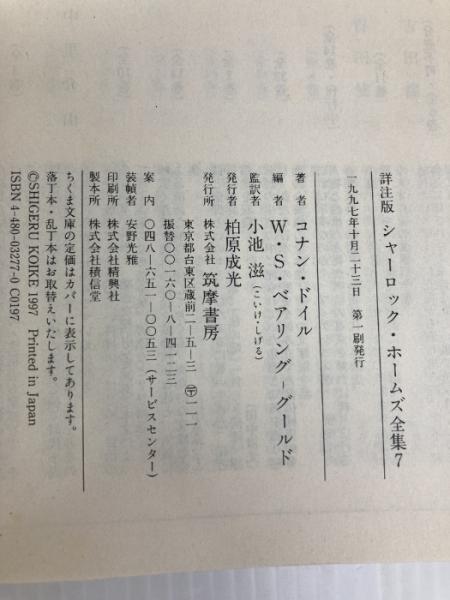 詳注版 シャーロック・ホームズ全集7
一九九七年十月二十三日 第一刷発行
著者 コナン・ドイル
編者 W・S・ベアリング-グールド
監訳者 小池 滋(こいけ・しげる)
発行者 柏原成光
発行所 株式会社 筑摩書房
東京都台東区蔵前二-五-三 〒一一一
振替〇〇一六〇-八-四一二三
案内 〇四八-六五一-〇〇五三(サービスセンター)
装幀者 安野光雅
印刷所 株式会社精興社
製本所 株式会社積信堂
ちくま文庫の定価はカバーに表示してあります。
落丁本・乱丁本はお取替えいたします。
©SHIGERU KOIKE 1997 Printed in Japan
ISBN 4-480-03277-0 C0197